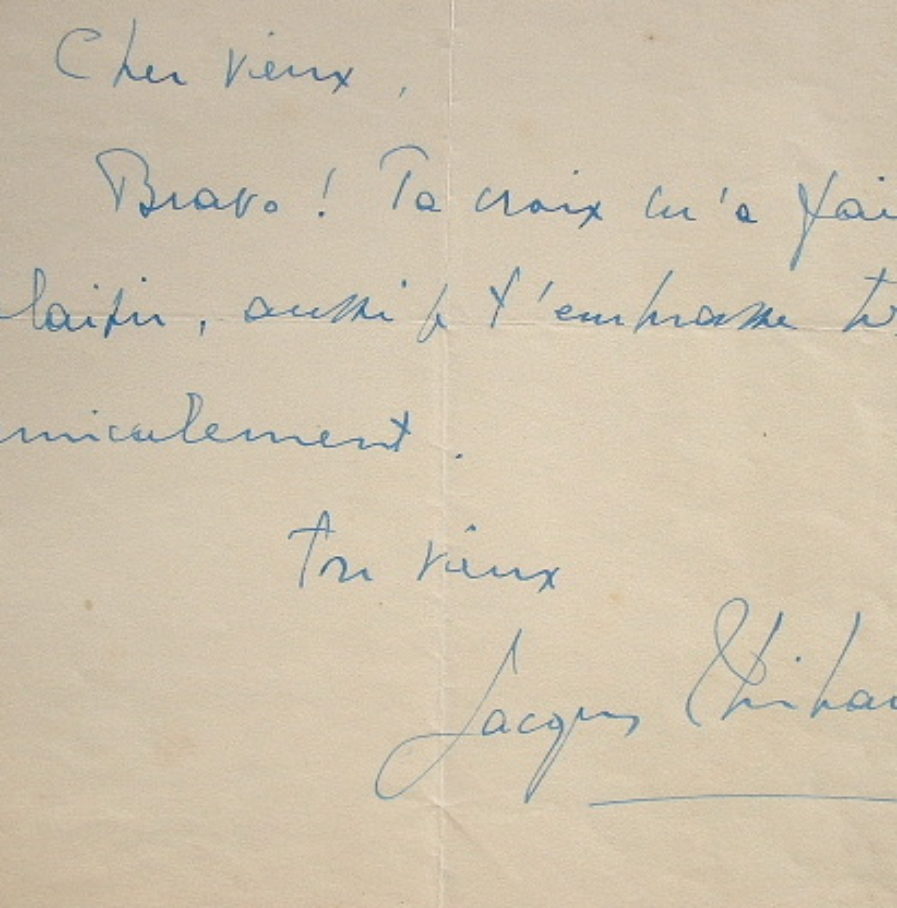 Cher vieux,
Bravo! Ta croix m'a fai
laisir, aussi je t'embrasse tr
micalement.
Ton vieux
Jacques Thibau